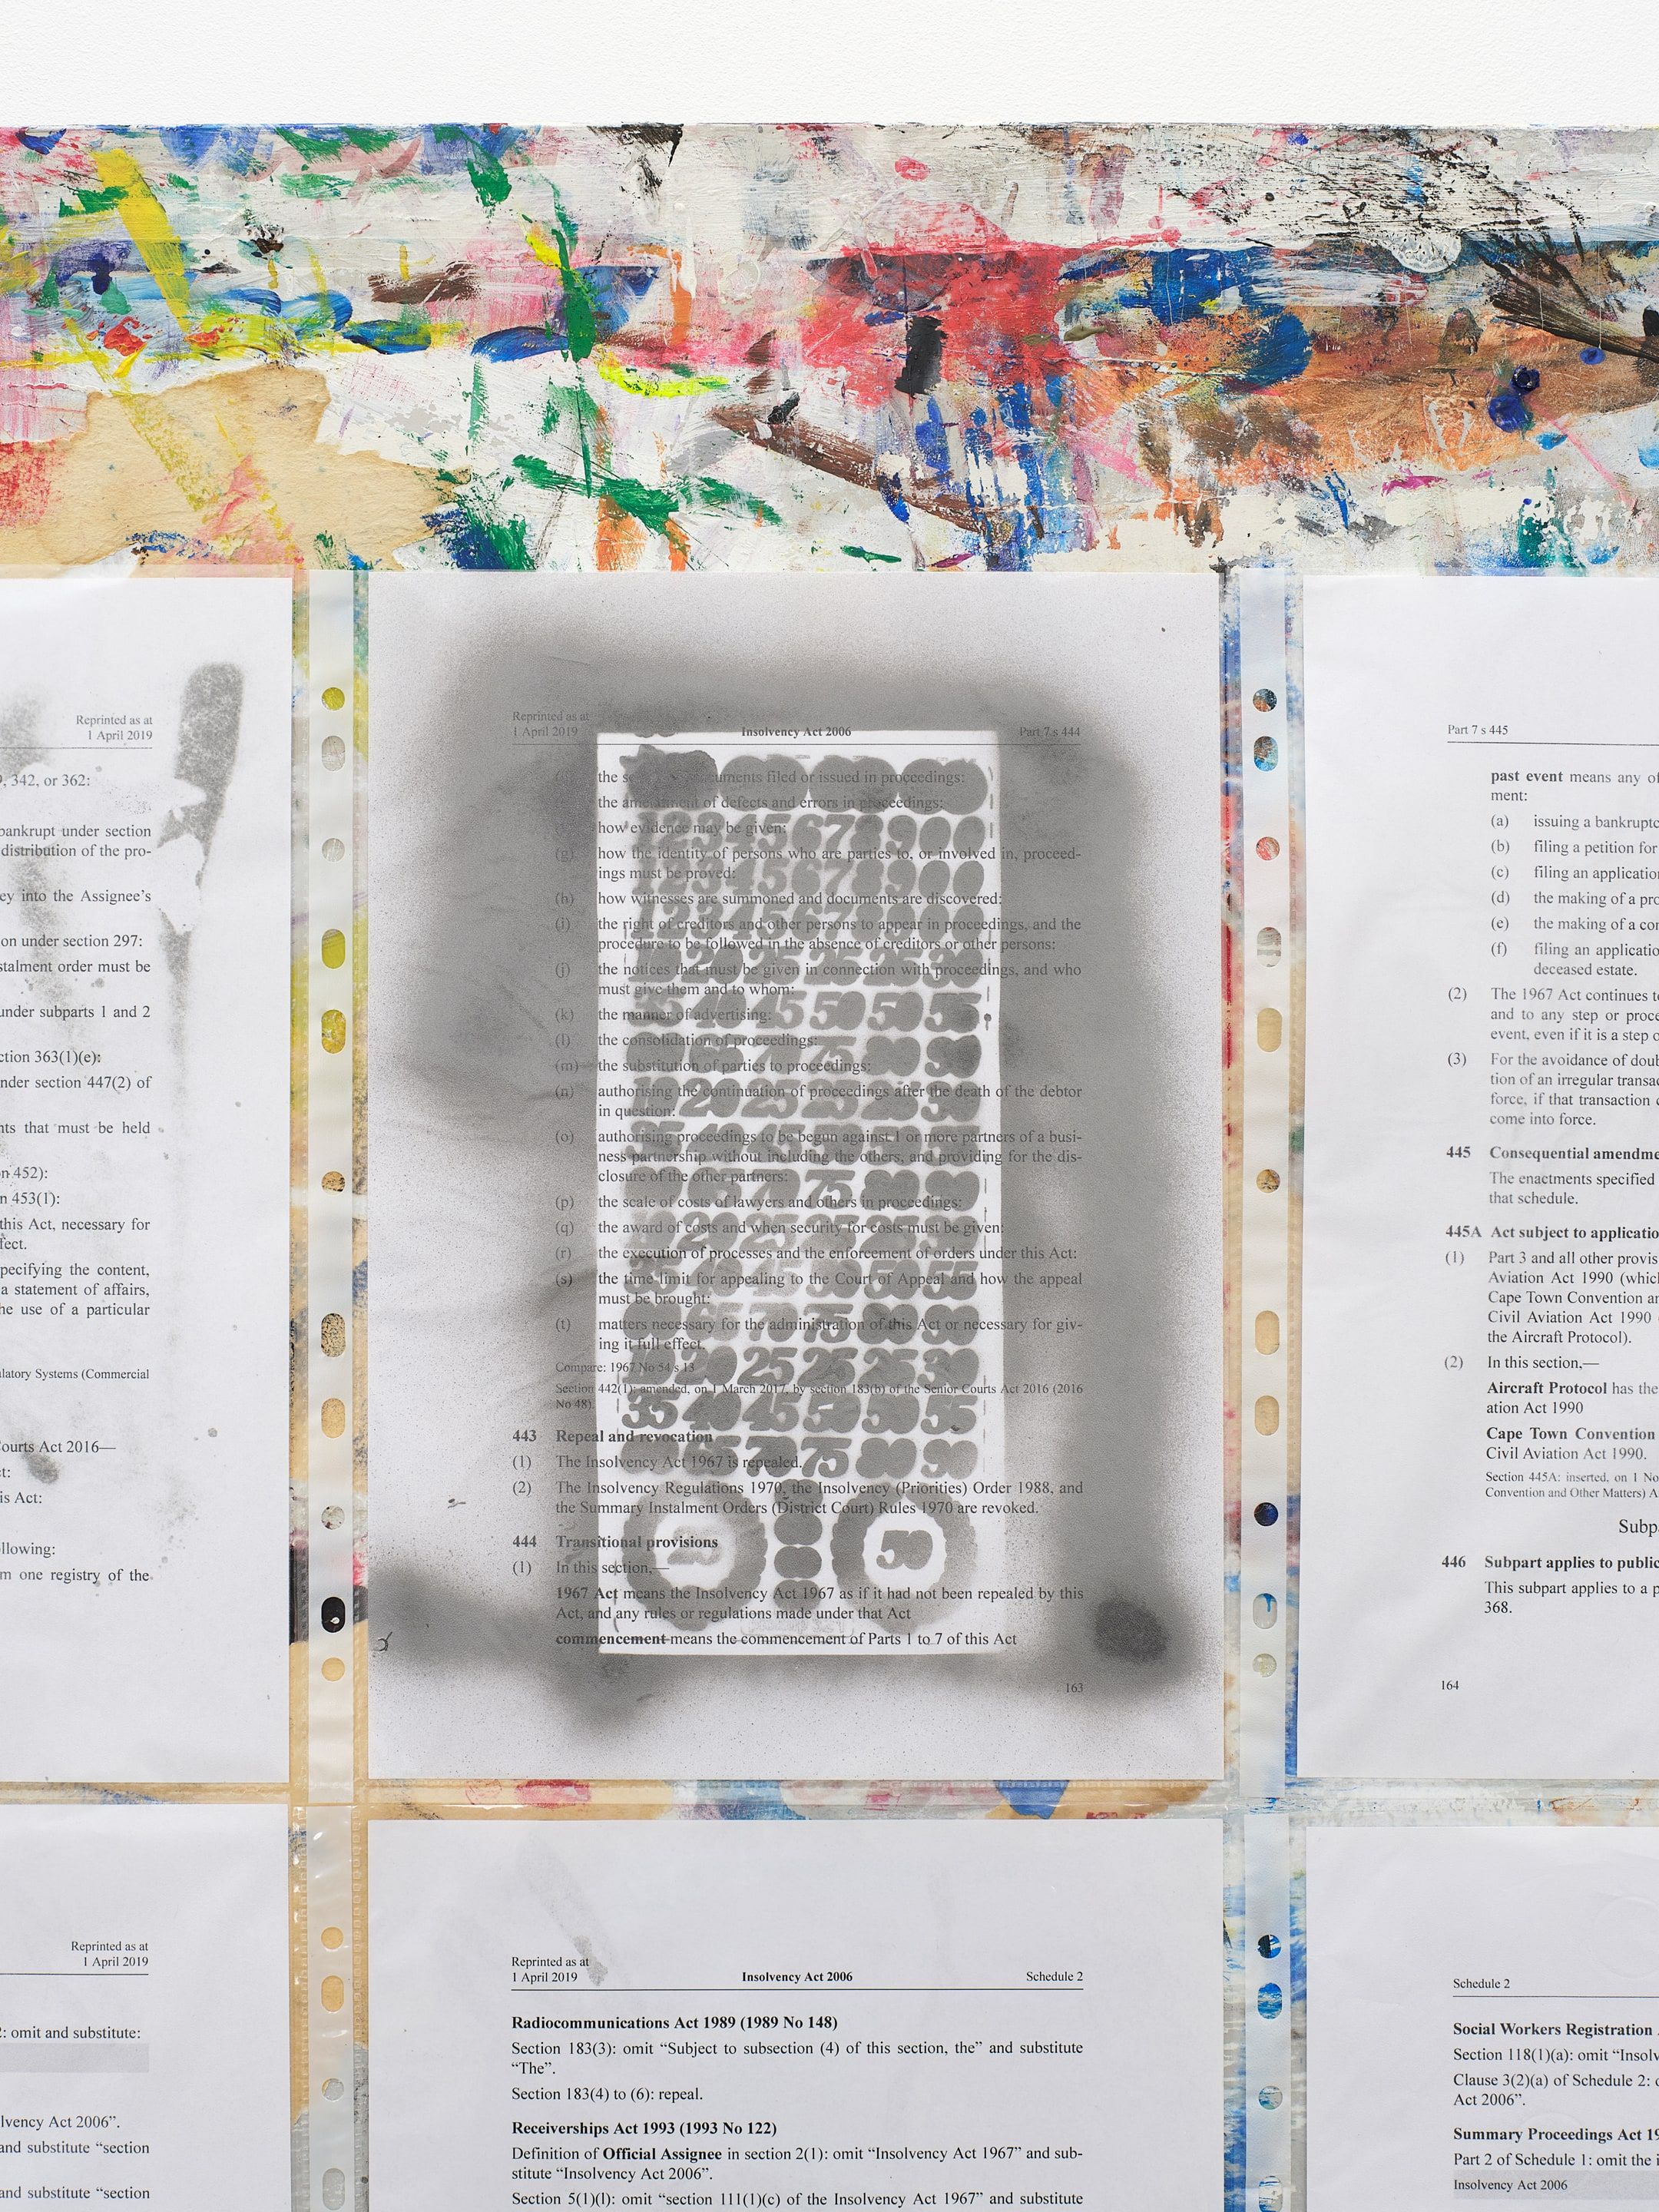 Reprinted as at
1 April 2019
, 342, or 362:
bankrupt under section
distribution of the pro-
ey into the Assignee's
on under section 297:
stalment order must be
under subparts 1 and 2
ction 363(1)(e):
nder section 447(2) of
nts that must be held
n 452):
n 453(1):
this Act, necessary for
fect.
pecifying the content,
a statement of affairs,
he use of a particular
latory Systems (Commercial
Courts Act 2016—
ct:
is Act:
llowing:
m one registry of the
Reprinted as at
1 April 2019 Insolvency Act 2006 Part 7 s 444
the documents filed or issued in proceedings:
the amendment of defects and errors in proceedings:
how evidence may be given:
(g) how the identity of persons who are parties to, or involved in, proceed-
ings must be proved:
(h) how witnesses are summoned and documents are discovered:
(i) the right of creditors and other persons to appear in proceedings, and the
procedure to be followed in the absence of creditors or other persons:
(j) the notices that must be given in connection with proceedings, and who
must give them and to whom:
(k) the manner of advertising:
(l) the consolidation of proceedings:
(m) the substitution of parties to proceedings:
(n) authorising the continuation of proceedings after the death of the debtor
in question:
(o) authorising proceedings to be begun against 1 or more partners of a busi-
ness partnership without including the others, and providing for the dis-
closure of the other partners:
(p) the scale of costs of lawyers and others in proceedings:
(q) the award of costs and when security for costs must be given:
(r) the execution of processes and the enforcement of orders under this Act:
(s) the time limit for appealing to the Court of Appeal and how the appeal
must be brought:
(t) matters necessary for the administration of this Act or necessary for giv-
ing it full effect.
Compare: 1967 No 54 s 13
Section 442(1): amended, on 1 March 2017, by section 183(b) of the Senior Courts Act 2016 (2016
No 48).
443 Repeal and revocation
(1) The Insolvency Act 1967 is repealed.
(2) The Insolvency Regulations 1970, the Insolvency (Priorities) Order 1988, and
the Summary Instalment Orders (District Court) Rules 1970 are revoked.
444 Transitional provisions
(1) In this section,—
1967 Act means the Insolvency Act 1967 as if it had not been repealed by this
Act, and any rules or regulations made under that Act
commencement means the commencement of Parts 1 to 7 of this Act
163
10 20 25 25 25 30
35 40 45 50 50 55
60 65 70 75 80 90
50
Part 7 s 445
past event means any of
ment:
(a) issuing a bankruptc
(b) filing a petition for
(c) filing an application
(d) the making of a pro
(e) the making of a con
(f) filing an applicatio
deceased estate.
(2) The 1967 Act continues to
and to any step or proce
event, even if it is a step o
(3) For the avoidance of doub
tion of an irregular transac
force, if that transaction o
come into force.
445 Consequential amendme
The enactments specified
that schedule.
445A Act subject to applicatio
(1) Part 3 and all other provis
Aviation Act 1990 (which
Cape Town Convention an
Civil Aviation Act 1990 (
the Aircraft Protocol).
(2) In this section,—
Aircraft Protocol has the
ation Act 1990
Cape Town Convention
Civil Aviation Act 1990.
Section 445A: inserted, on 1 No
Convention and Other Matters) A
Subp
446 Subpart applies to public
This subpart applies to a p
368.
164
Reprinted as at
1 April 2019
2: omit and substitute:
lvency Act 2006”.
and substitute “section
and substitute “section
Reprinted as at
1 April 2019 Insolvency Act 2006 Schedule 2
Radiocommunications Act 1989 (1989 No 148)
Section 183(3): omit “Subject to subsection (4) of this section, the” and substitute
“The”.
Section 183(4) to (6): repeal.
Receiverships Act 1993 (1993 No 122)
Definition of Official Assignee in section 2(1): omit “Insolvency Act 1967” and sub-
stitute “Insolvency Act 2006”.
Section 5(1)(l): omit “section 111(1)(c) of the Insolvency Act 1967” and substitute
Schedule 2
Social Workers Registration
Section 118(1)(a): omit “Insolv
Clause 3(2)(a) of Schedule 2: o
Act 2006”.
Summary Proceedings Act 19
Part 2 of Schedule 1: omit the i
Insolvency Act 2006